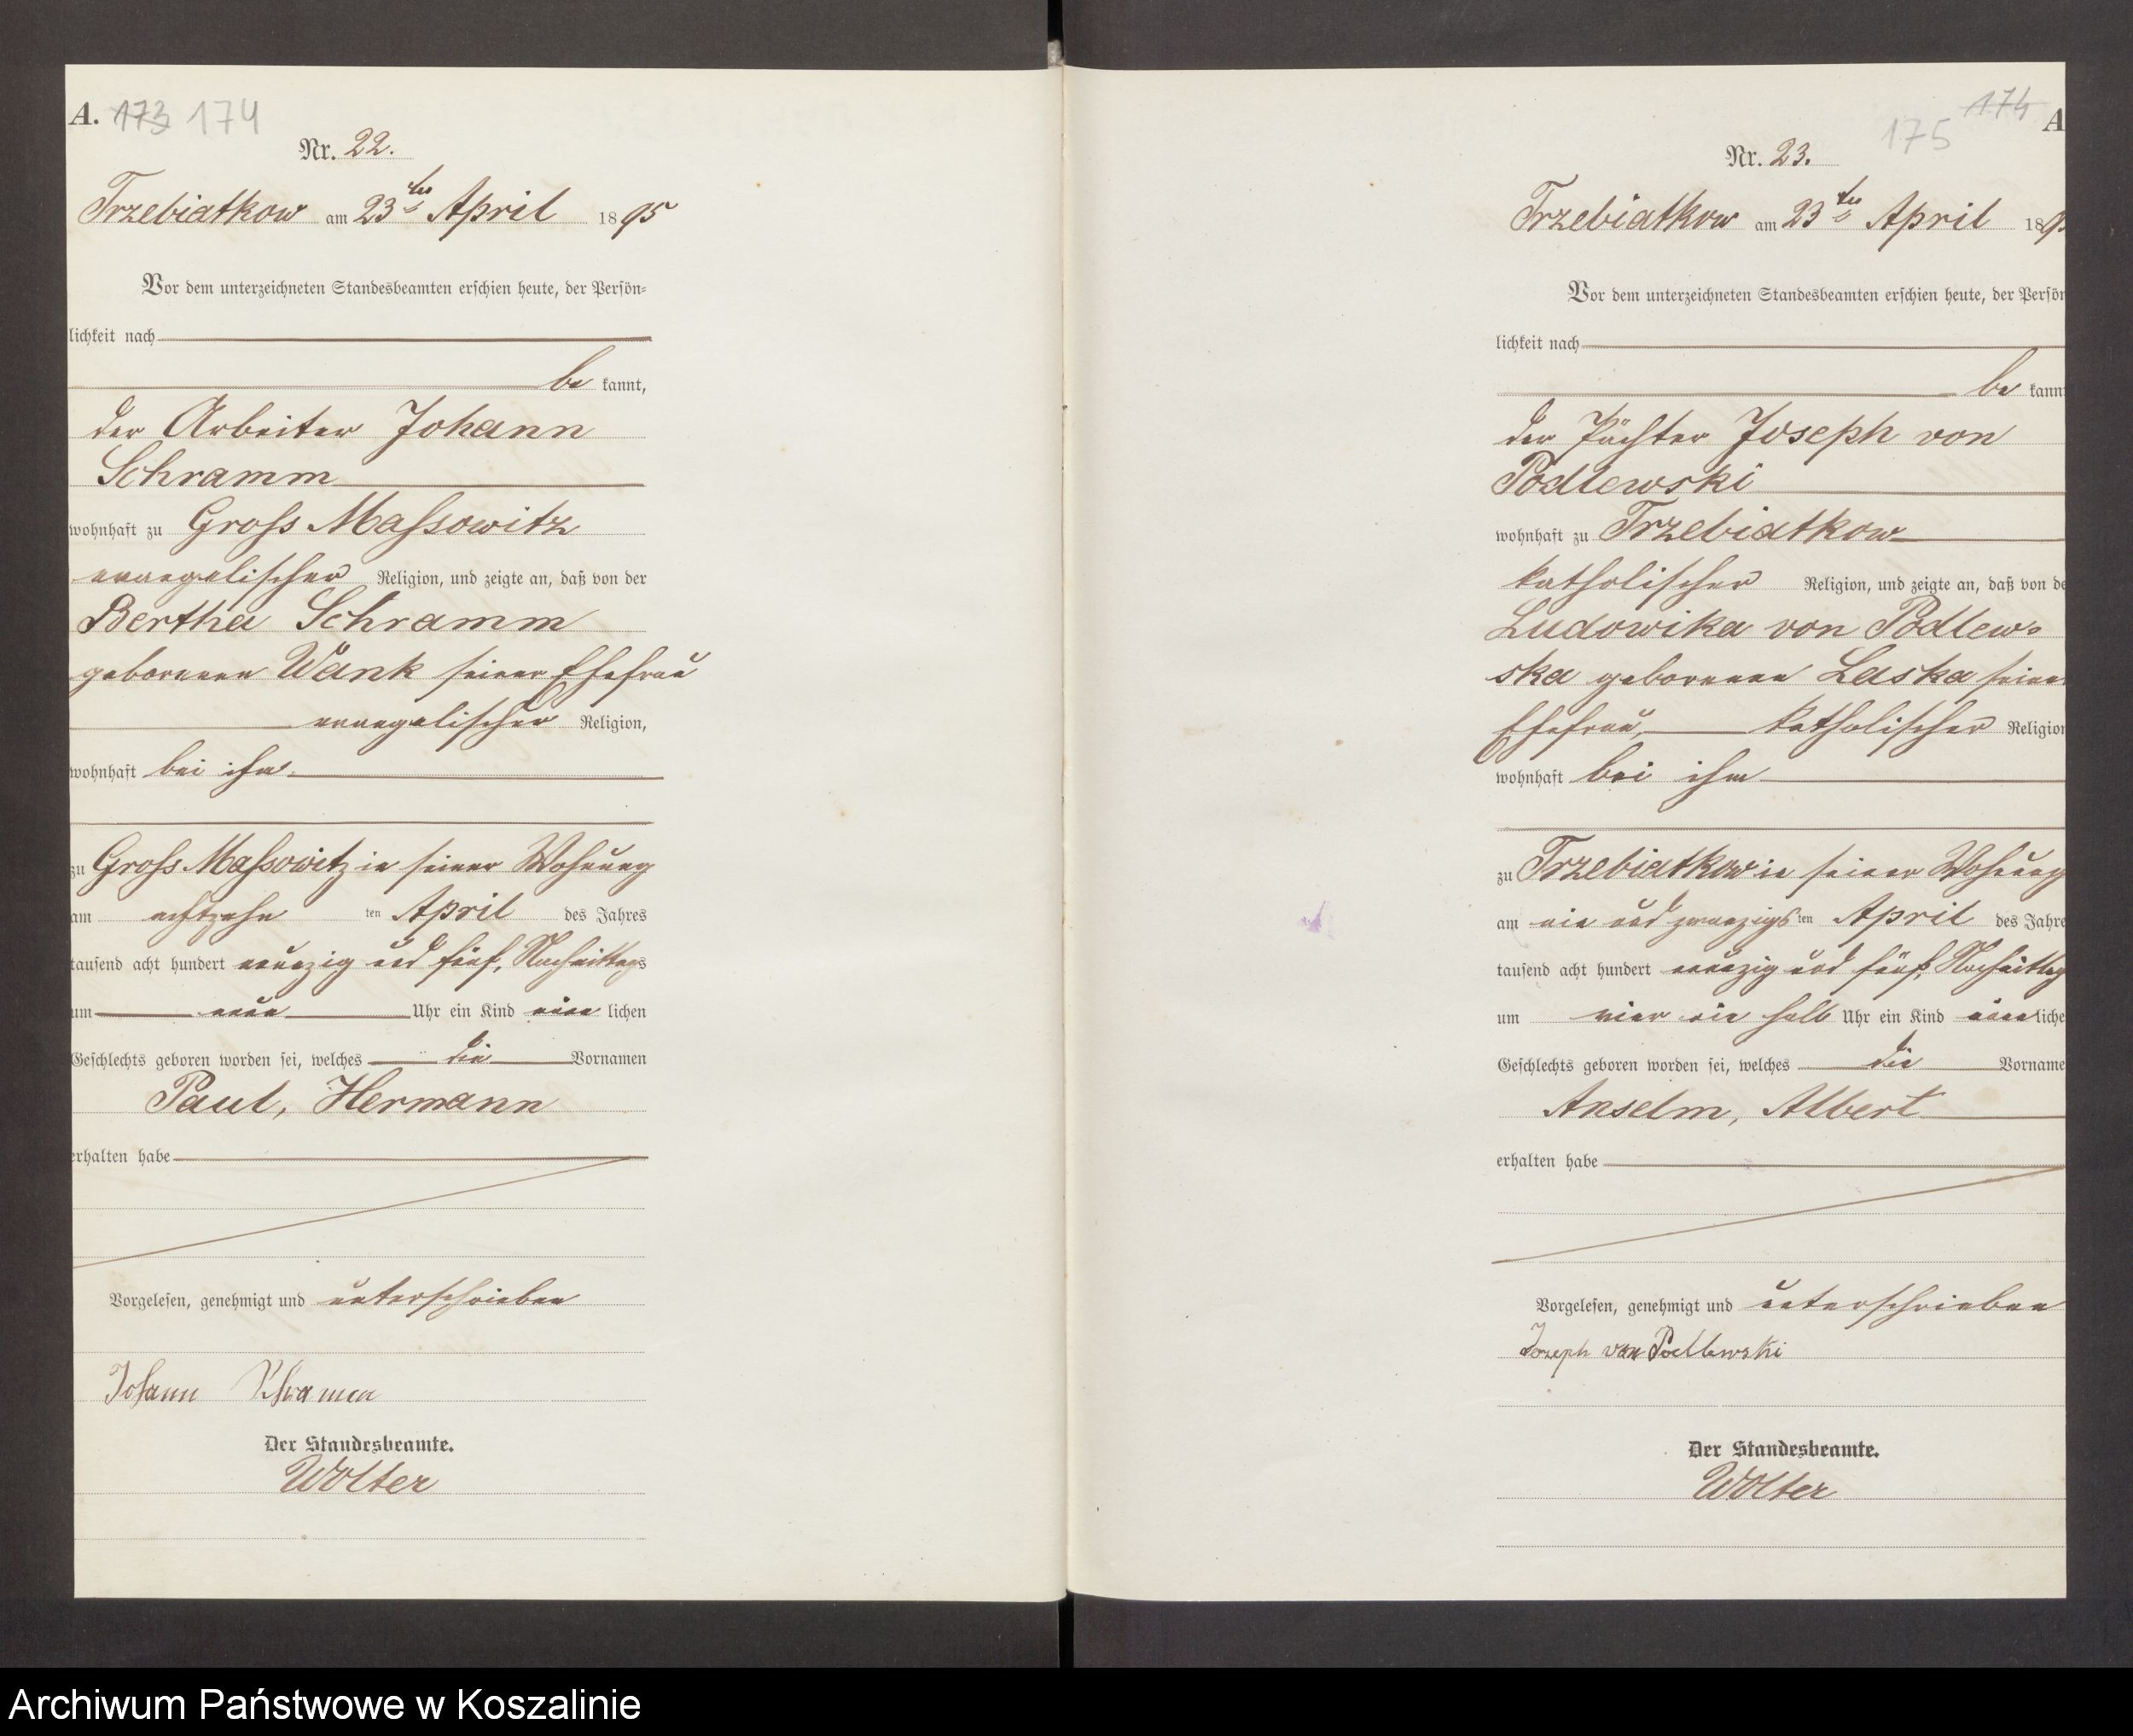 A. 173 174
Nr. 22.
Trzebiatkow am 23ten April 1895
Vor dem unterzeichneten Standesbeamten erschien heute, der Persön-
lichkeit nach
be kannt,
der Arbeiter Johann
Schramm
wohnhaft zu Gross Massowitz
evangelischer Religion, und zeigte an, daß von der
Bertha Schramm
geborenen Wänk seiner Ehefrau
evangelischer Religion,
wohnhaft bei ihm
zu Gross Massowitz in seiner Wohnung
am achtzehn ten April des Jahres
tausend acht hundert neunzig und fünf, Nachmittags
um neun Uhr ein Kind männ lichen
Geschlechts geboren worden sei, welches die Vornamen
Paul, Hermann
erhalten habe
Vorgelesen, genehmigt und unterschrieben
Johann Schramm
Der Standesbeamte.
Wolter
174 A
175
Nr. 23.
Trzebiatkow am 23ten April 189
Vor dem unterzeichneten Standesbeamten erschien heute, der Persön
lichkeit nach
be kann
der Pächter Joseph von
Podlewski
wohnhaft zu Trzebiatkow
katholischer Religion, und zeigte an, daß von de
Ludowika von Podlew-
ska geborenen Laska seiner
Ehefrau, katholischer Religion
wohnhaft bei ihm
zu Trzebiatkow in seiner Wohnung
am ein und zwanzigsten April des Jahre
tausend acht hundert neunzig und fünf, Nachmittag
um vier ein halb Uhr ein Kind männ liche
Geschlechts geboren worden sei, welches die Vorname
Anselm, Albert
erhalten habe
Vorgelesen, genehmigt und unterschrieben
Joseph von Podlewski
Der Standesbeamte.
Wolter
Archiwum Państwowe w Koszalinie